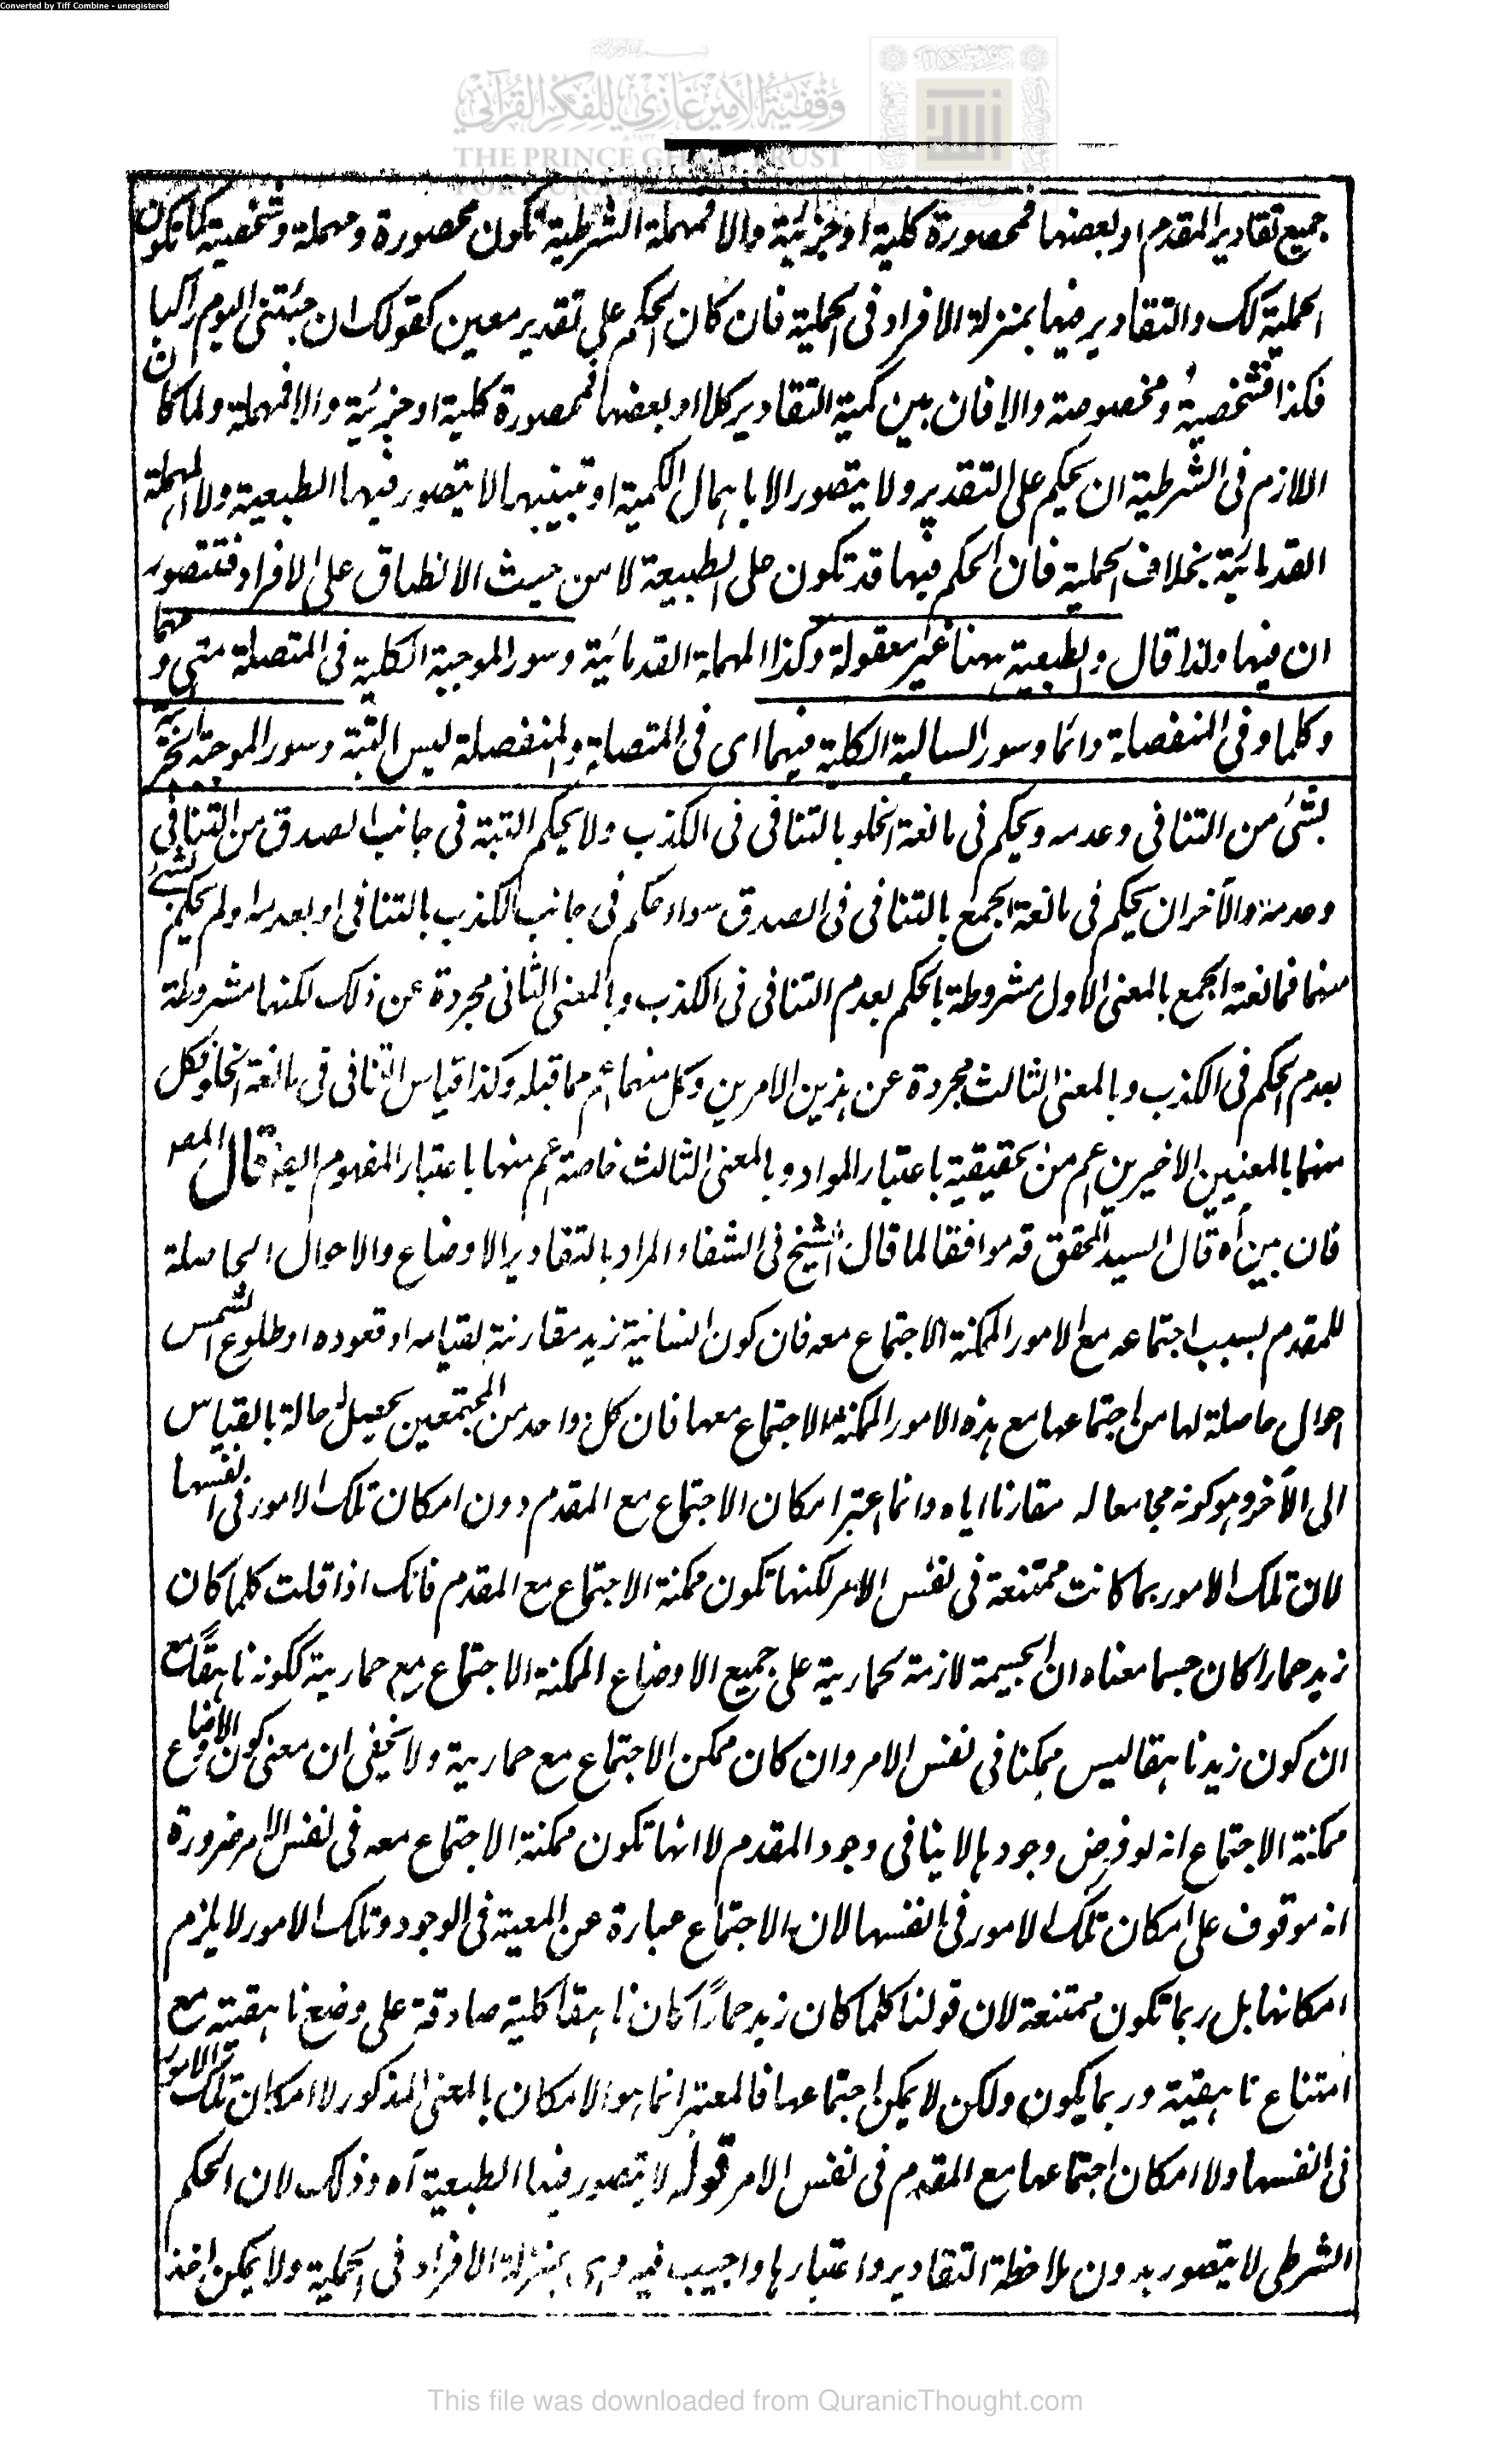 Converted by Tiff Combine - unregistered
وقفية الأمير غازي للفكر القرآني
THE PRINCE GHAZI TRUST
جميع تقادير المقدم او بعضها فمحصورة كلية او جزئية والا فمهملة الشرطية تكون محصورة ومهملة وشخصية كما تكون
الحملية كك والتقادير فيها بمنزلة الافراد فى الحملية فان كان الحكم على تقدير معين كقولك ان جئتنى اليوم راكبا
فكذا فشخصية ومخصوصة والا فان بين كمية التقادير كلا او بعضها فمحصورة كلية او جزئية والا فمهملة ولما كان
اللازم فى الشرطية ان يحكم على التقدير ولا يتصور الا باهمال الكمية او تبيينها لا يتصور فيها الطبعية ولا المهملة
القدمائية بخلاف الحملية فان الحكم فيها قد تكون على الطبيعة لا من حيث الانطباق على الافراد فتتصور
ان فيها ولذا قال والطبعية ههنا غير معقولة وكذا المهملة القدمائية وسور الموجبة الكلية فى المتصلة متى ومهما
وكلما وفى المنفصلة دائما وسور السالبة الكلية فيهما اى فى المتصلة والمنفصلة ليس البتة وسور الموجبة الجزئية
بشئ من التنافى وعدمه ويحكم فى مانعة الخلو بالتنافى فى الكذب ولا يحكم البتة فى جانب الصدق من التنافى
وعدمه والآخران يحكم فى مانعة الجمع بالتنافى فى الصدق سواء حكم فى جانب الكذب بالتنافى او بعدمه او لم يحكم بشئ
منهما فمانعة الجمع بالمعنى الاول مشروطة بالحكم بعدم التنافى فى الكذب وبالمعنى الثانى مجردة عن ذلك لكنها مشروطة
بعدم الحكم فى الكذب وبالمعنى الثالث مجردة عن هذين الامرين وكل منهما اعم مما قبله وكذا قياس الثانى فى مانعة الخلو فكل
منهما بالمعنيين الاخيرين اعم من حقيقية باعتبار المواد وبالمعنى الثالث خاصة اعم منها باعتبار المفهوم ايضا قال المصر
فان بين آه قال السيد المحقق قه موافقا لما قال الشيخ فى الشفاء المراد بالتقادير الاوضاع والاحوال الحاصلة
للمقدم بسبب اجتماعه مع الامور الممكنة الاجتماع معه فان كون انسانية زيد مقارنة لقيامه او قعوده او طلوع الشمس
احوال حاصلة لها من اجتماعها مع هذه الامور الممكنة الاجتماع معها فان كل واحد من المجتمعين يحصل له حالة بالقياس
الى الآخر وهو كونه مجامعا له مقارنا اياه وانما اعتبر امكان الاجتماع مع المقدم دون امكان تلك الامور فى انفسها
لان تلك الامور ربما كانت ممتنعة فى نفس الامر لكنها تكون ممكنة الاجتماع مع المقدم فانك اذا قلت كلما كان
زيد حمارا كان جسما معناه ان الجسمية لازمة لحمارية على جميع الاوضاع الممكنة الاجتماع مع حمارية ككونه ناهقا مع
ان كون زيد ناهقا ليس ممكنا فى نفس الامر وان كان ممكن الاجتماع مع حمارية ولا يخفى ان معنى كون الاوضاع
ممكنة الاجتماع انه لو فرض وجودها لا ينافى وجود المقدم لا انها تكون ممكنة الاجتماع معه فى نفس الامر ضرورة
انه موقوف على امكان تلك الامور فى انفسها لان الاجتماع عبارة عن المعية فى الوجود وتلك الامور لا يلزم
امكانها بل ربما تكون ممتنعة لان قولنا كلما كان زيد حمارًا كان ناهقا كلية صادقة على وضع ناهقيته مع
امتناع ناهقيته وربما يكون ولكن لا يمكن اجتماعها فالمعتبر انما هو الامكان بالمعنى المذكور لا امكان تلك الامور
فى انفسها ولا امكان اجتماعها مع المقدم فى نفس الامر قوله لا يتصور فيها الطبعية آه وذلك لان الحكم
الشرطى لا يتصور بدون ملاحظة التقادير واعتبارها واجيب فيه وهى بمنزلة الافراد فى الحملية ولا يمكن اخذ
This file was downloaded from QuranicThought.com